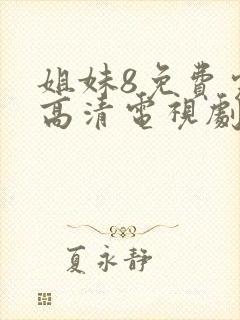 姐妹8免费
高清電視劇
夏永静